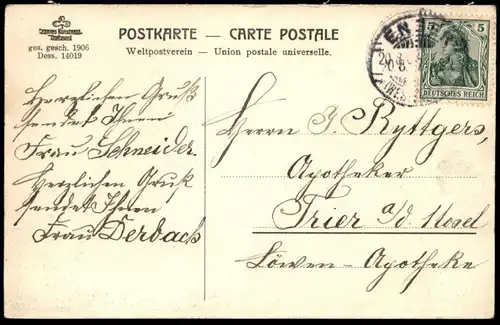 POSTKARTE — CARTE POSTALE
Weltpostverein — Union postale universelle.
ges. gesch. 1906
Dess. 14019
Herzlichen Gruß
sendet Ihnen
Frau Schneider.
Herzlichen Gruß
sendet Ihnen
Frau Derbach
5 5
DEUTSCHES REICH
Herrn J. Ryttgers,
Apotheker
Trier a/d. Mosel
Löwen-Apotheke